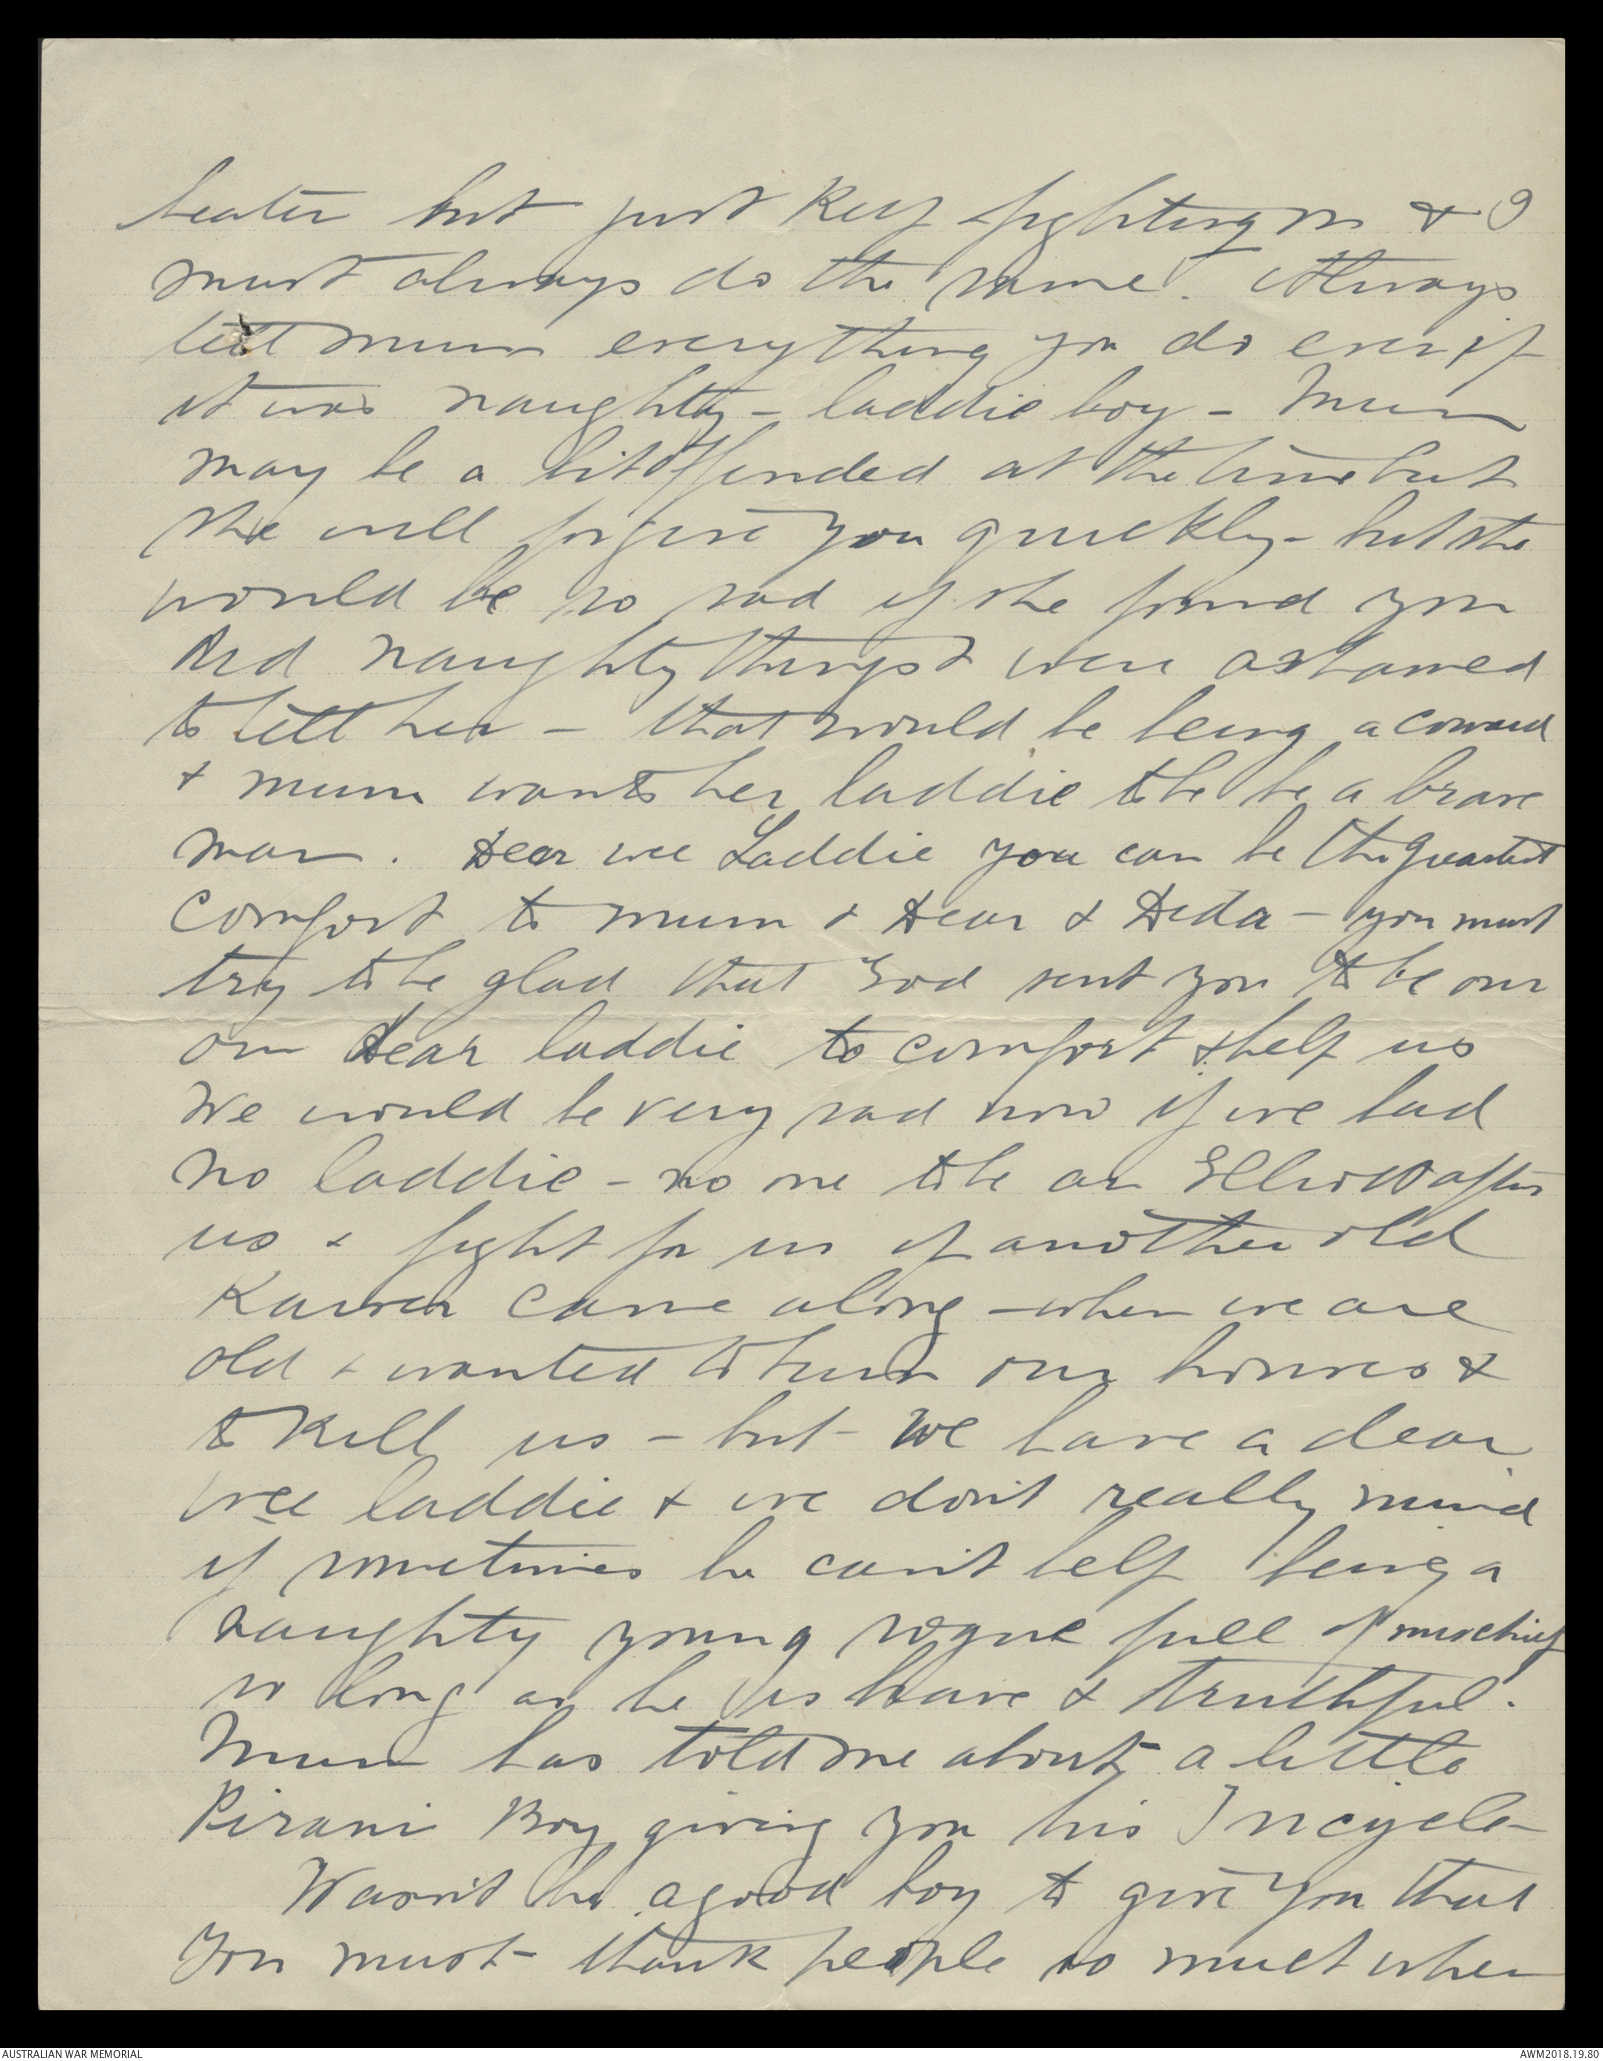 beaten but just keep fighting on & I
must always do the same. Always
tell mum everything you do even if
it was naughty – laddie boy – Mum
may be a bit offended at the time but
she will forgive you quickly – but she
would be so sad if she found you
did naughty things & were ashamed
to tell her – that would be being a coward
& mum wants her laddie to be a brave
man. Dear wee Laddie you can be the greatest
comfort to mum & Dear & Dida – you must
try to be glad that God sent you to be our
own dear laddie to comfort & help us
We would be very sad now if we had
no laddie – no one to be an after
us & fight for us if another old
Kaiser came along – when we are
old & wanted to burn our houses &
to kill us – but we have a dear
wee laddie & we don't really mind
if sometimes he can't help being a
naughty young rogue full of mischief
so long as he is brave & truthful.
Mum has told me about a little
Pirani Boy giving you his Tricycle –
Wasn't he a good boy to give you that
You must thank people so much when
AUSTRALIAN WAR MEMORIAL
AWM2018.19.80